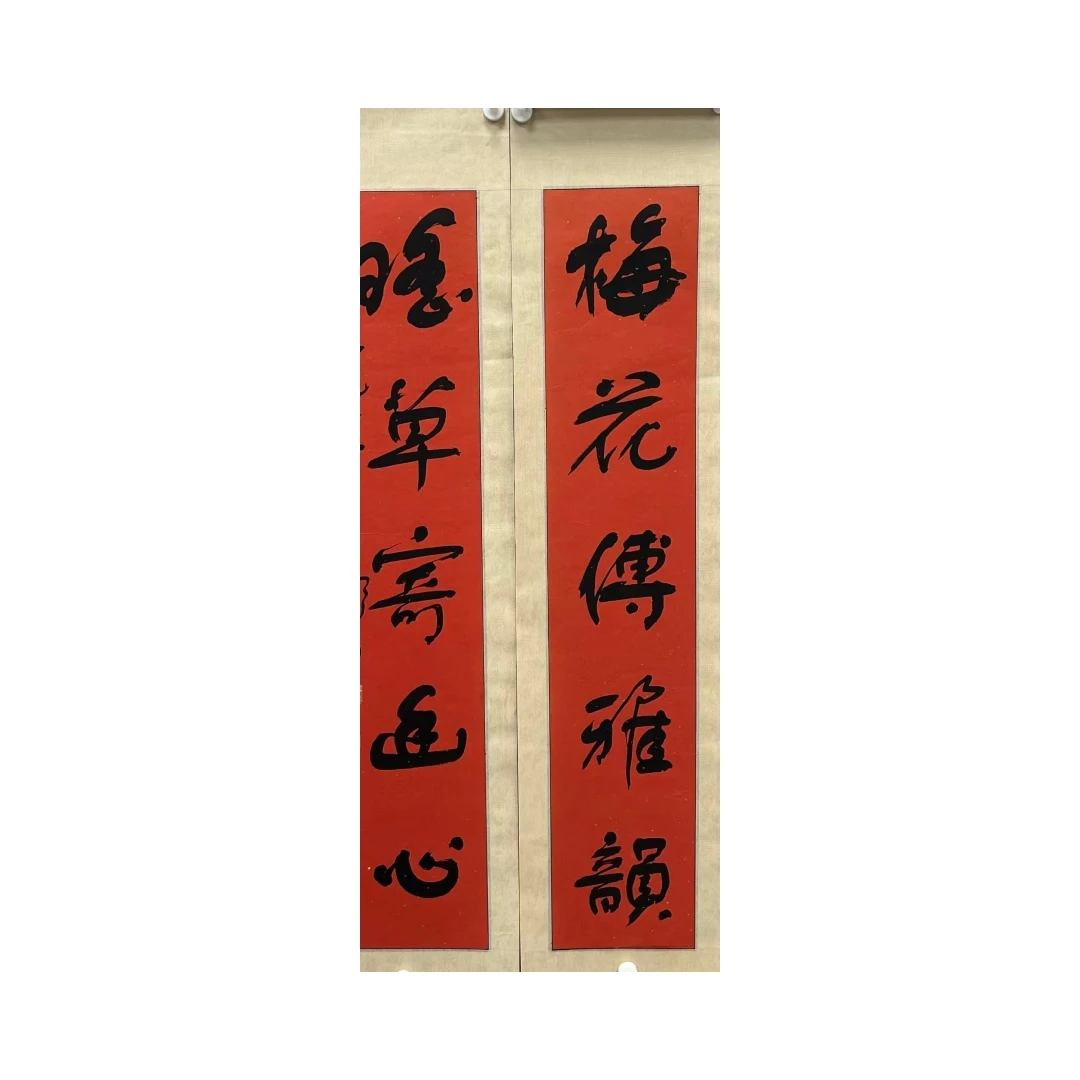 梅花傳雅韻
草寄幽心